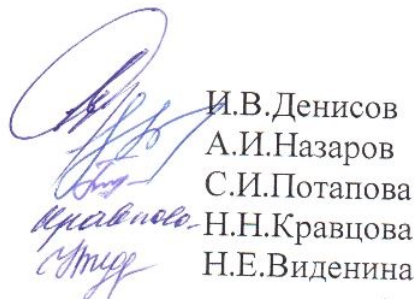 И.В.Денисов
А.И.Назаров
С.И.Потапова
Н.Н.Кравцова
Н.Е.Виденина